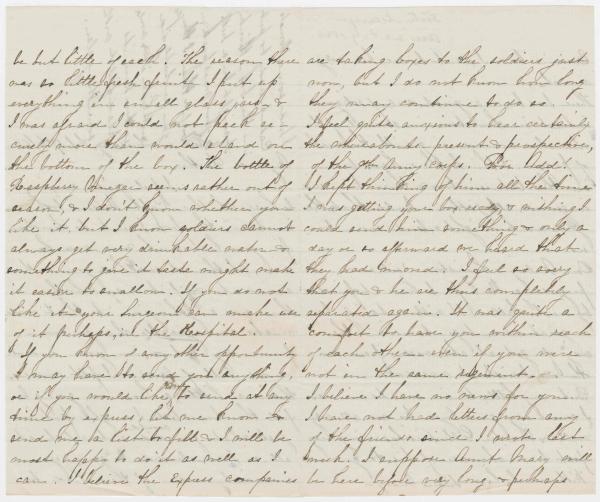 be but little of each. The reason there
was so little fresh fruit I put up
everything in small glass jars, &
I was afraid I could not pack se-
curely more than would stand on
the bottom of the box. The bottle of
Raspberry Vinegar seems rather out of
season, & I don't know whether you
like it, but I know soldiers cannot
always get very drinkable water &
something to give it taste might make
it easier to swallow. If you do not
like it your Surgeon can make use
of it perhaps, in the Hospital.
If you know of any other opportunity
I may have to send you anything,
or if you would like me to send at any
time by express, let me know &
send me a list to fill & I will be
most happy to do it as well as I
can. I believe the Express companies
are taking boxes to the soldiers just
now, but I do not know how long
they may continue to do so.
I feel quite anxious to hear certainly
the whereabouts present & prospective,
of the Army Corps. Poor
I kept thinking of him all the time
I was getting your box ready & wishing I
could send him something & only a
day or so afterward we heard that
they had moved. I feel so sorry
that you & he are thus completely
separated again. It was quite a
comfort to have you within reach
of each other even if you were
not in the same regiment.
I believe I have no news for you.
I have not had letters from any
of the friends since I wrote last
week. I suppose Aunt Mary will
be here before very long & perhaps